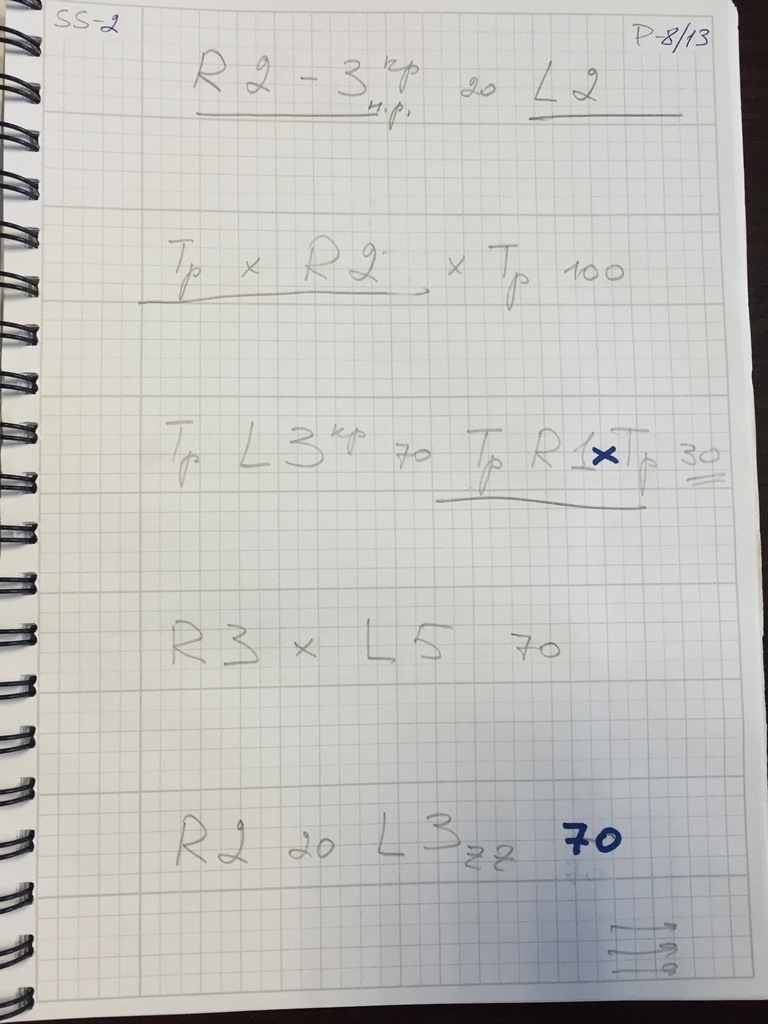 SS-2 P-8/13
R 2 - 3 кр н.р. 20 L 2
Тр x R 2 x Тр 100
Тр L 3 кр 70 Тр R 1 x Тр 30
R 3 x L 5 70
R 2 20 L 3 zz 70